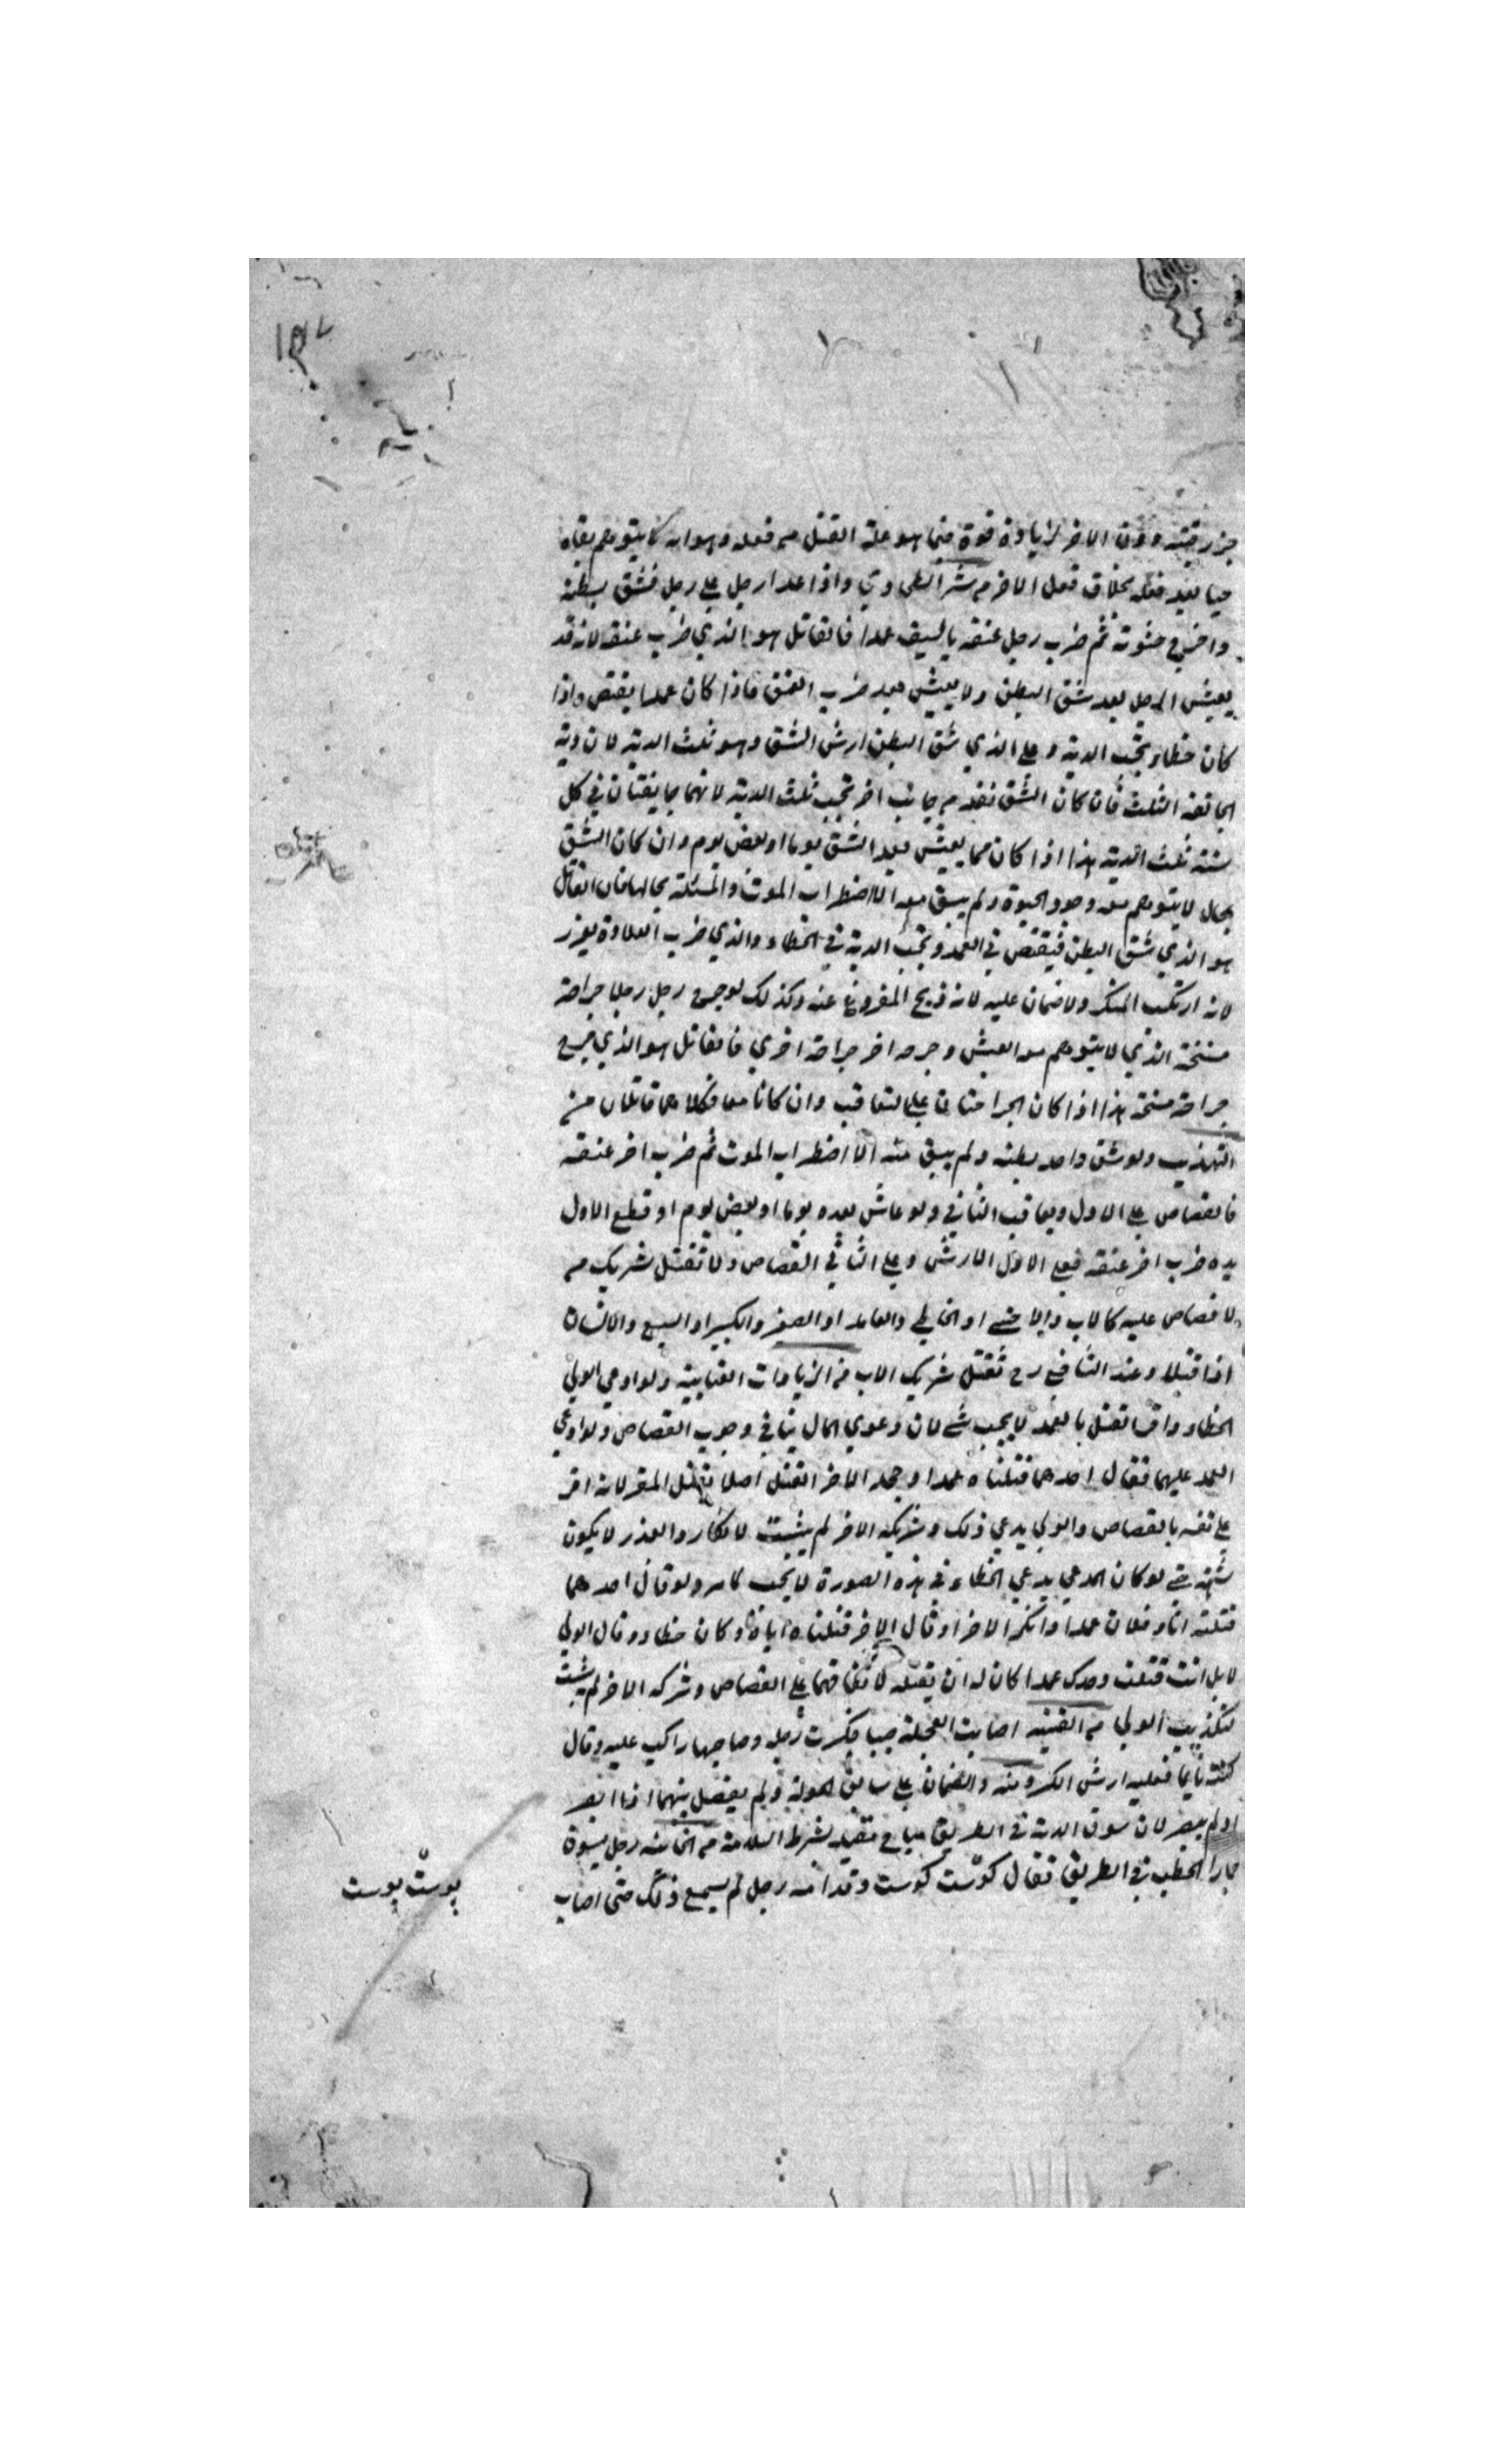 جز رقبته دون الاخر لزيادة قوة فيما هو علة القتل من فعله وهو انه لا يتوهم بقاه
حيا بعد فعله بخلاف فعل الاخر من شر الطحاوي واذا عدا رجل على رجل فشق بطنه
واخرج حشوته ثم ضرب رجل عنقه بالسيف عمدا فالقاتل هو الذي ضرب عنقه لانه قد
يعيش الرجل بعد شق البطن ولا يعيش بعد ضرب العنق فاذا كان عمدا يقتص واذا
كان خطاء تجب الدية وعلى الذي شق البطن ارش الشق وهو ثلث الدية لان دية
الجائفة الثلث فان كان الشق نفذ من جانب اخر تجب ثلث الدية لانهما جايفتان في كل
سنة ثلث الدية هذا اذا كان مما يعيش بعد الشق يوما او بعض يوم وان كان الشق
بحال لا يتوهم معه وجود الحيوة ولم يبق معه الا اضطراب الموت والمسئلة بحالها فان القاتل
هو الذي شق البطن فيقتص في العمد وتجب الدية في الخطاء والذي ضرب العلاوة يعزر
لانه ارتكب المنكر ولا ضمان عليه لانه ذبح المفروغ عنه وكذلك لو جرح رجل رجلا جراحة
مثخنة الذي لا يتوهم معه العيش وجرحه اخر جراحة اخري فالقاتل هو الذي جرح
جراحة مثخنة هذا اذا كان الجراحتان على التعاقب وان كانا معا فكلاهما قاتلان من
التهذيب ولو شق واحد بطنه ولم يبق منه الا اضطراب الموت ثم ضرب اخر عنقه
فالقصاص على الاول ويعاقب الثاني ولو عاش بعده يوما او بعض يوم او قطع الاول
يده ضرب اخر عنقه فعلى الاول الارش وعلى الثاني القصاص ولا تقتل شريك من
لا قصاص عليه كالاب والاجنبي او الخاطي والعامد او الصغير والكبير او السبع والانسان
اذا قتلا وعند الشافعي رح تقتل شريك الاب من الزيادات العتابية ولو ادعي الولي
الخطاء واقرا لقتل بالعمد لا يجب شي لان دعوي المال ينافي وجوب القصاص ولو ادعي
العمد عليهما فقال احدهما قتلناه عمدا وجحد الاخر القتل اصلا تقتل المقر لانه اقر
على نفسه بالقصاص والولي يدعي ذلك وشركه الاخر لم يثبت لانكاره والعذر لا يكون
شبهة حتى لو كان المدعي يدعي الخطاء في هذه الصورة لا تجب لما مر ولو قال احدهما
قتلته انا وفلان عمدا وانكر الاخر او قال الاخر قتلناه اياه وكان خطاء وقال الولي
لا بل انت قتلت وحدك عمدا كان له ان يقتله لاتفاقهما على القصاص وشركه الاخر لم يثبت
لتكذيب الولي من القنية اصابت العجلة صبيا فكسرت رجله وصاحبها راكب عليه وقال
كنت نايما فعليه ارش الكسر ومنه والضمان على سايق الحمولة ولم يفصل بينهما اذا ابصر
او لم يبصر لان سوق الدية في الطريق مباح مقيد بشرط السلامة من الخانية رجل يسوق
حمارا لخطب في الطريق فقال كوست كوست وقدامه رجل لم يسمع ذلك حتى اصاب
پوست پوست